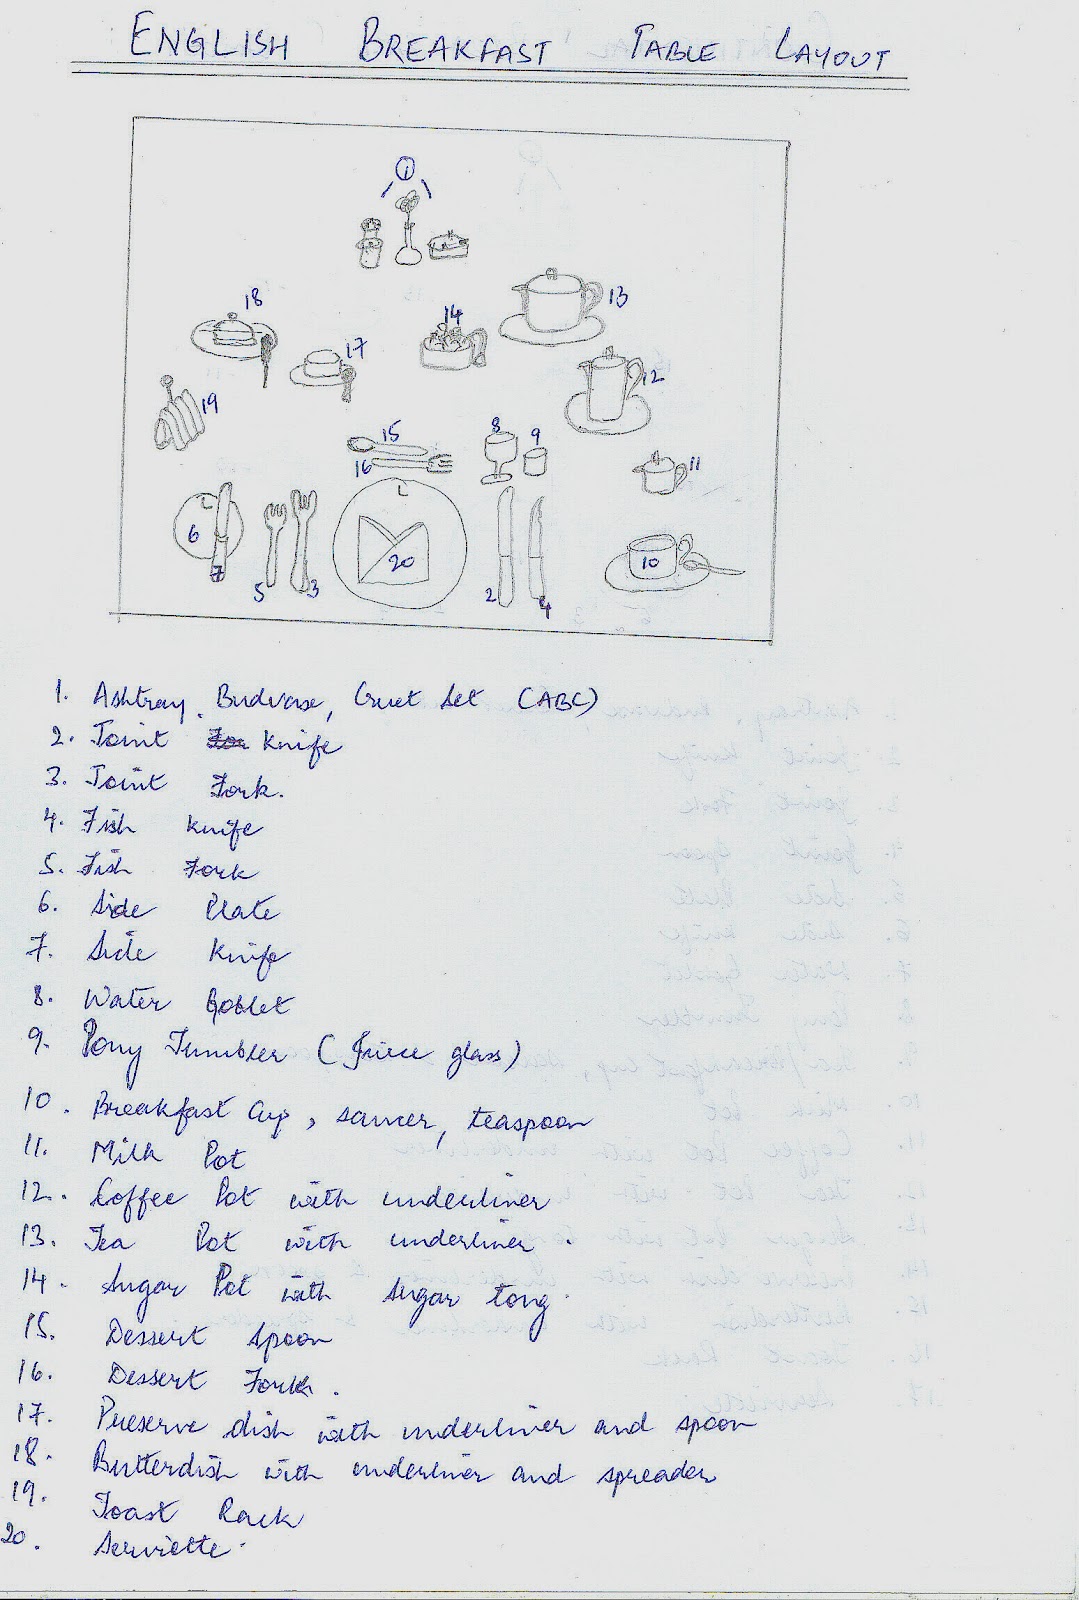 ENGLISH BREAKFAST TABLE LAYOUT
1
18
14
13
17
12
19
15
8
9
16
11
6
20
10
7
5
3
2
4
1. Ashtray, Budvase, Cruet Set (ABC)
2. Joint Knife
3. Joint Fork.
4. Fish Knife
5. Fish Fork
6. Side Plate
7. Side Knife
8. Water Goblet
9. Pony Tumbler (Juice glass)
10. Breakfast Cup, saucer, teaspoon
11. Milk Pot
12. Coffee Pot with underliner
13. Tea Pot with underliner.
14. Sugar Pot with Sugar tong.
15. Dessert Spoon
16. Dessert Fork.
17. Preserve dish with underliner and spoon
18. Butterdish with underliner and spreader
19. Toast Rack
20. Serviette.